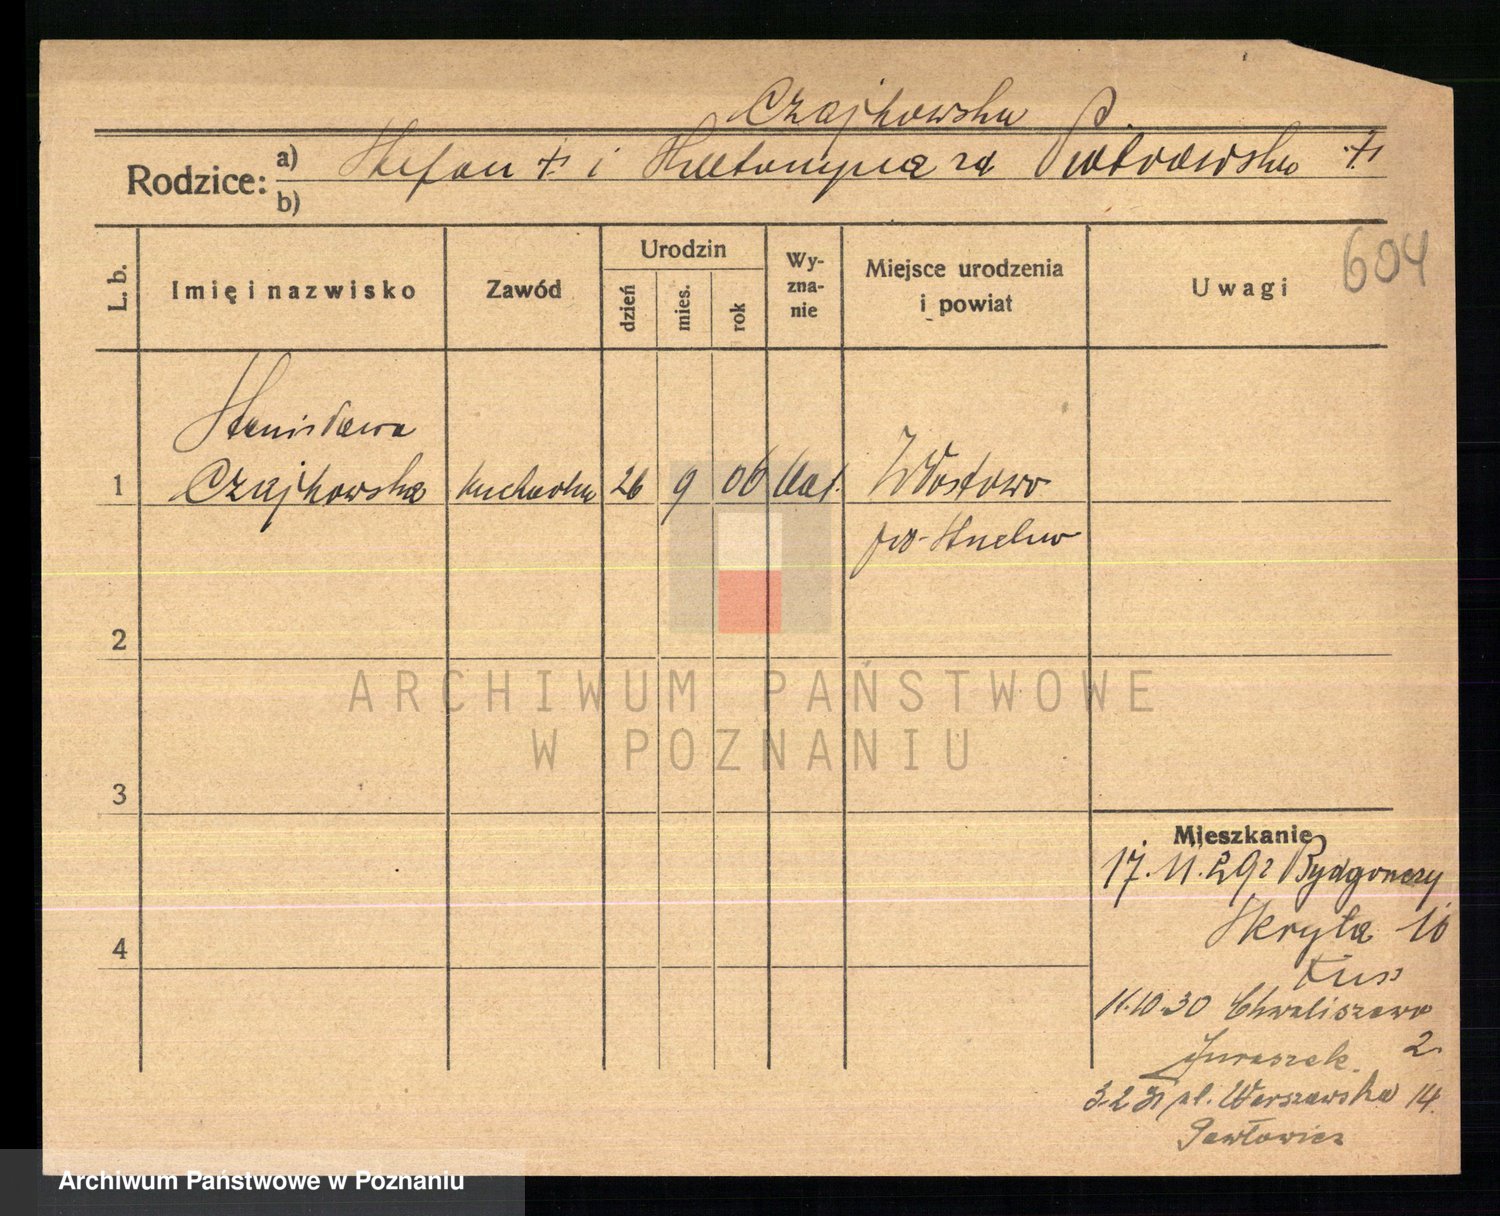 Czajkowska
Rodzice: a) Stefan + i za Piotrowska +
b)
604
L. b. Imię i nazwisko Zawód Urodzin dzień mies. rok Wyznanie Miejsce urodzenia i powiat Uwagi
Stanisława
1 Czajkowska kucharka 26 9 06 kat. Włostowo
pw.
2
3
4
Mieszkanie
17.11.29 z Bydgoszczy
Skryta 16
11.10.30 Chwaliszewo
Juraszek 2
3.2.31 pl. Warszawska 14
Pawłowicz
ARCHIWUM PAŃSTWOWE
W POZNANIU
Archiwum Państwowe w Poznaniu